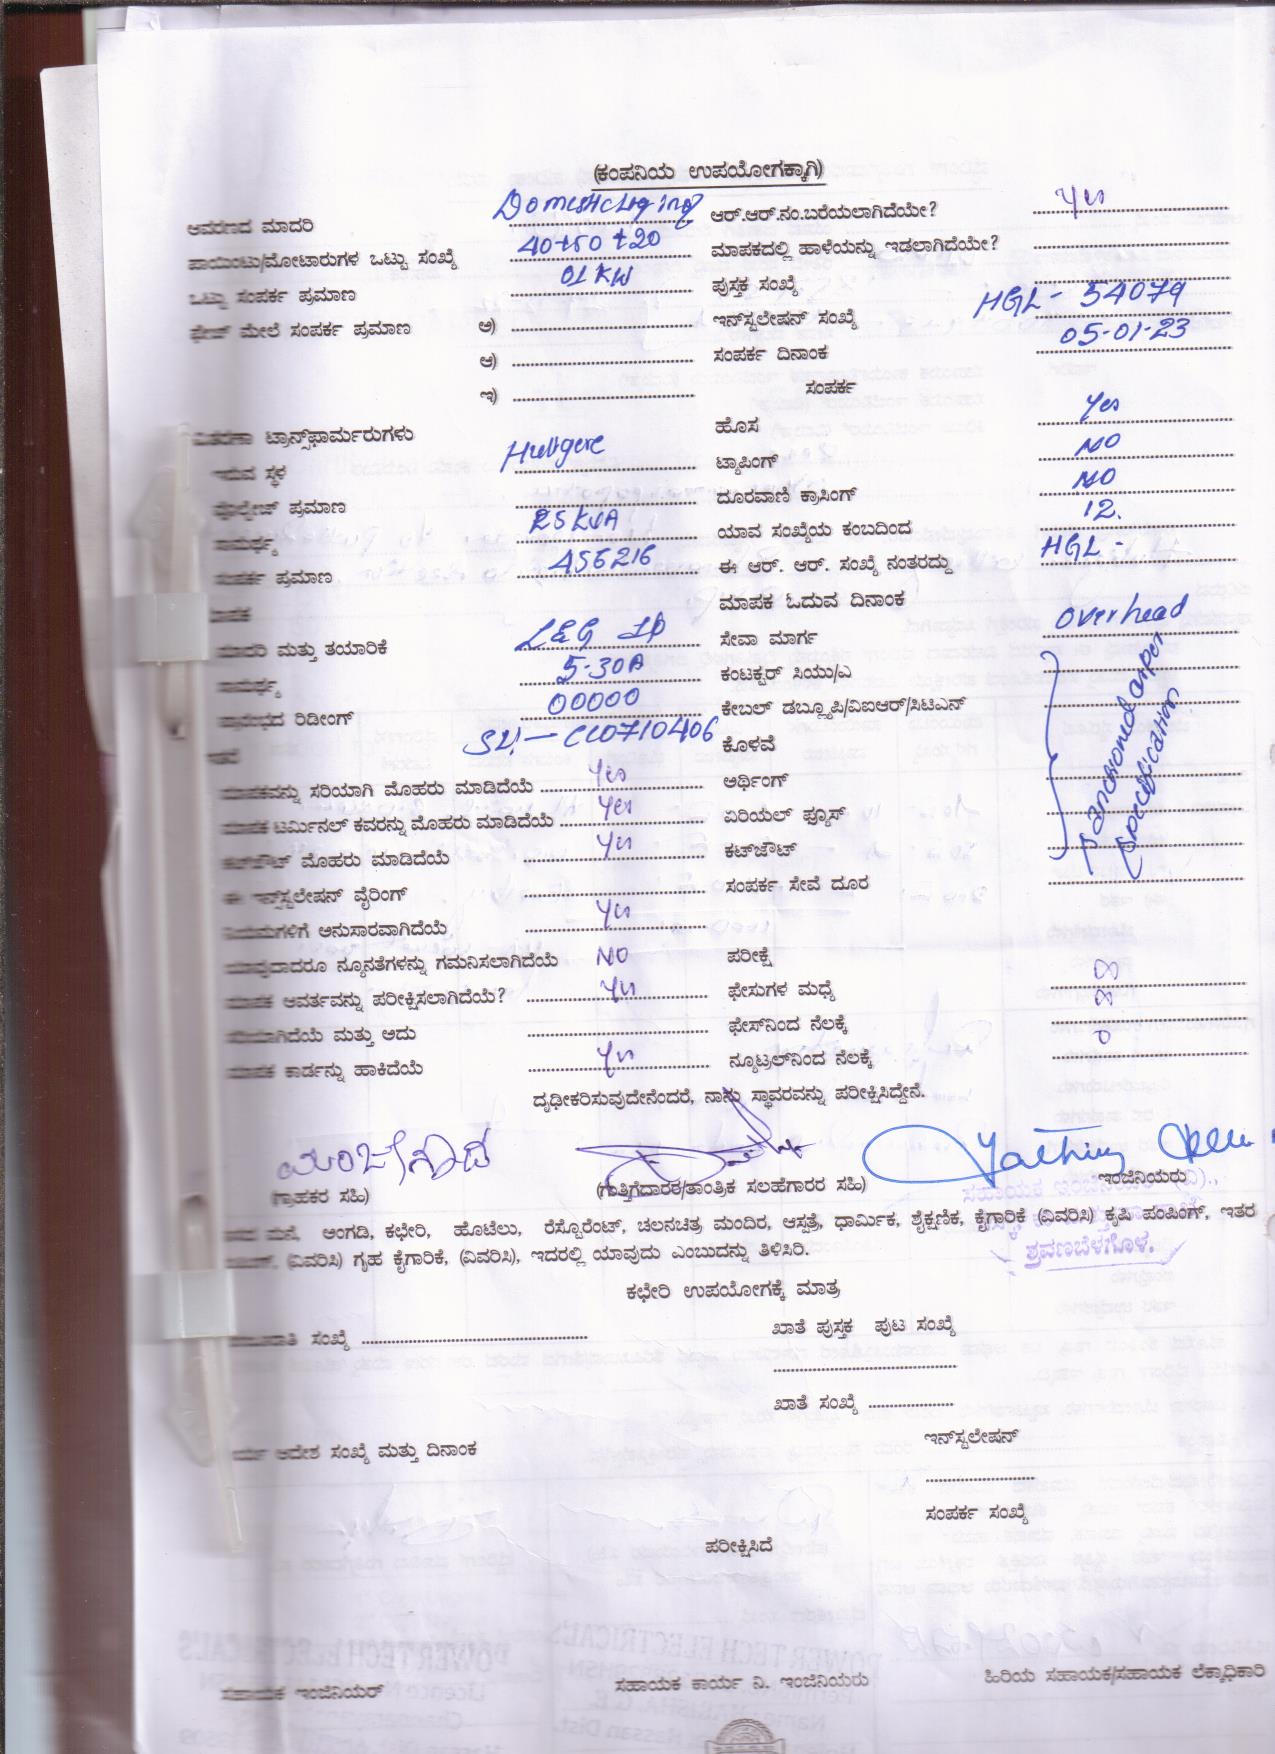 (ಕಂಪನಿಯ ಉಪಯೋಗಕ್ಕಾಗಿ)
ಆವರಣದ ಮಾದರಿ Domestic Liging ಆರ್.ಆರ್.ನಂ.ಬರೆಯಲಾಗಿದೆಯೇ? Yes
ಪಾಯಿಂಟು/ಮೋಟಾರುಗಳ ಒಟ್ಟು ಸಂಖ್ಯೆ 40+50+20 ಮಾಪಕದಲ್ಲಿ ಹಾಳೆಯನ್ನು ಇಡಲಾಗಿದೆಯೇ?
ಒಟ್ಟು ಸಂಪರ್ಕ ಪ್ರಮಾಣ 01 KW ಪುಸ್ತಕ ಸಂಖ್ಯೆ
ಮೇಲೆ ಸಂಪರ್ಕ ಪ್ರಮಾಣ ಅ) ಇನ್‌ಸ್ಟಲೇಷನ್ ಸಂಖ್ಯೆ HGL - 54079
ಆ) ಸಂಪರ್ಕ ದಿನಾಂಕ 05-01-23
ಇ) ಸಂಪರ್ಕ
ವಿತರಣಾ ಟ್ರಾನ್ಸ್‌ಫಾರ್ಮರುಗಳು ಹೊಸ Yes
ಇರುವ ಸ್ಥಳ ಟ್ಯಾಪಿಂಗ್ NO
ವೋಲ್ಟೇಜ್ ಪ್ರಮಾಣ ದೂರವಾಣಿ ಕ್ರಾಸಿಂಗ್ NO
ಸಾಮರ್ಥ್ಯ 25 KVA ಯಾವ ಸಂಖ್ಯೆಯ ಕಂಬದಿಂದ 12.
ಸಂಪರ್ಕ ಪ್ರಮಾಣ 456216 ಈ ಆರ್. ಆರ್. ಸಂಖ್ಯೆ ನಂತರದ್ದು HGL -
ಮಾಪಕ ಮಾಪಕ ಓದುವ ದಿನಾಂಕ
ಮಾದರಿ ಮತ್ತು ತಯಾರಿಕೆ L&G ಸೇವಾ ಮಾರ್ಗ overhead
ಸಾಮರ್ಥ್ಯ 5-30A ಕಂಟಕ್ಟರ್ ಸಿಯು/ಎ
ಪ್ರಾರಂಭದ ರಿಡೀಂಗ್ 00000 ಕೇಬಲ್ ಡಬ್ಲ್ಯೂಪಿ/ವಿಐಆರ್/ಸಿಟಿಎನ್
CL0710406 ಕೊಳವೆ
Sanctioned as per specification
ಮಾಪಕವನ್ನು ಸರಿಯಾಗಿ ಮೊಹರು ಮಾಡಿದೆಯೆ Yes ಅರ್ಥಿಂಗ್
ಮಾಪಕ ಟರ್ಮಿನಲ್ ಕವರನ್ನು ಮೊಹರು ಮಾಡಿದೆಯೆ Yes ಏರಿಯಲ್ ಫ್ಯೂಸ್
ಕಟ್‌ಔಟ್ ಮೊಹರು ಮಾಡಿದೆಯೆ Yes ಕಟ್‌ಔಟ್
ಈ ಇನ್ಸ್‌ಟಲೇಷನ್ ವೈರಿಂಗ್ ಸಂಪರ್ಕ ಸೇವೆ ದೂರ
ನಿಯಮಗಳಿಗೆ ಅನುಸಾರವಾಗಿದೆಯೆ Yes
ಯಾವುದಾದರೂ ನ್ಯೂನತೆಗಳನ್ನು ಗಮನಿಸಲಾಗಿದೆಯೆ NO ಪರೀಕ್ಷೆ
ಮಾಪಕ ಆವರ್ತವನ್ನು ಪರೀಕ್ಷಿಸಲಾಗಿದೆಯೆ? Yes ಫೇಸುಗಳ ಮಧ್ಯೆ ∞
ಸರಿಯಾಗಿದೆಯೆ ಮತ್ತು ಅದು ಫೇಸ್‌ನಿಂದ ನೆಲಕ್ಕೆ ∞
ಮಾಪಕ ಕಾರ್ಡನ್ನು ಹಾಕಿದೆಯೆ Yes ನ್ಯೂಟ್ರಲ್‌ನಿಂದ ನೆಲಕ್ಕೆ 0
ದೃಢೀಕರಿಸುವುದೇನೆಂದರೆ, ನಾನು ಸ್ಥಾವರವನ್ನು ಪರೀಕ್ಷಿಸಿದ್ದೇನೆ.
ಮಂಜೇಗೌಡ
(ಗ್ರಾಹಕರ ಸಹಿ) (ಗುತ್ತಿಗೆದಾರರ/ತಾಂತ್ರಿಕ ಸಲಹೆಗಾರರ ಸಹಿ) ಇಂಜಿನಿಯರು
ಮನೆ, ಅಂಗಡಿ, ಕಛೇರಿ, ಹೊಟೆಲು, ರೆಸ್ಟೊರೆಂಟ್, ಚಲನಚಿತ್ರ ಮಂದಿರ, ಆಸ್ಪತ್ರೆ, ಧಾರ್ಮಿಕ, ಶೈಕ್ಷಣಿಕ, ಕೈಗಾರಿಕೆ (ವಿವರಿಸಿ) ಕೃಷಿ ಪಂಪಿಂಗ್, ಇತರ
(ವಿವರಿಸಿ) ಗೃಹ ಕೈಗಾರಿಕೆ, (ವಿವರಿಸಿ), ಇದರಲ್ಲಿ ಯಾವುದು ಎಂಬುದನ್ನು ತಿಳಿಸಿರಿ.
ಶ್ರವಣಬೆಳಗೊಳ.
ಕಛೇರಿ ಉಪಯೋಗಕ್ಕೆ ಮಾತ್ರ
ಸಂಖ್ಯೆ ಖಾತೆ ಪುಸ್ತಕ ಪುಟ ಸಂಖ್ಯೆ
ಖಾತೆ ಸಂಖ್ಯೆ
ಆದೇಶ ಸಂಖ್ಯೆ ಮತ್ತು ದಿನಾಂಕ ಇನ್‌ಸ್ಟಲೇಷನ್
ಸಂಪರ್ಕ ಸಂಖ್ಯೆ
ಪರೀಕ್ಷಿಸಿದೆ
ಸಹಾಯಕ ಇಂಜಿನಿಯರ್ ಸಹಾಯಕ ಕಾರ್ಯ ನಿ. ಇಂಜಿನಿಯರು ಹಿರಿಯ ಸಹಾಯಕ/ಸಹಾಯಕ ಲೆಕ್ಕಾಧಿಕಾರಿ